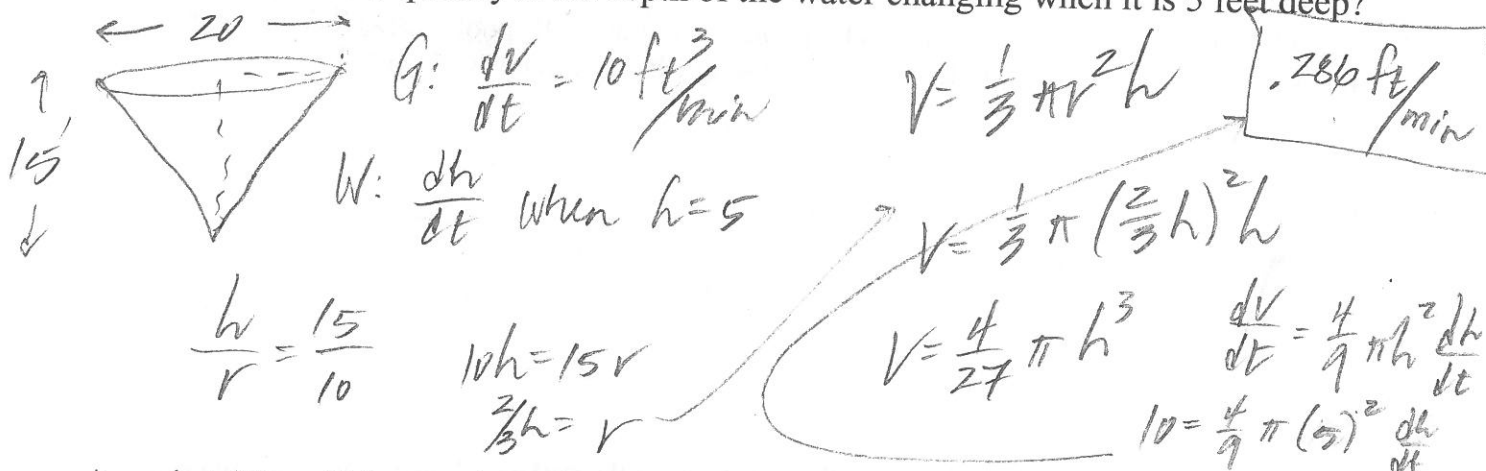 depth of the water changing when it is 5 feet deep?
← 20 →
15
G: dv/dt = 10 ft³/min
W: dh/dt when h=5
h/r = 15/10
10h=15r
2/3h= r
V= 1/3 πr²h
.286 ft/min
V= 1/3 π (2/3 h)² h
V= 4/27 π h³
dV/dt = 4/9 πh² dh/dt
10= 4/9 π (5)² dh/dt